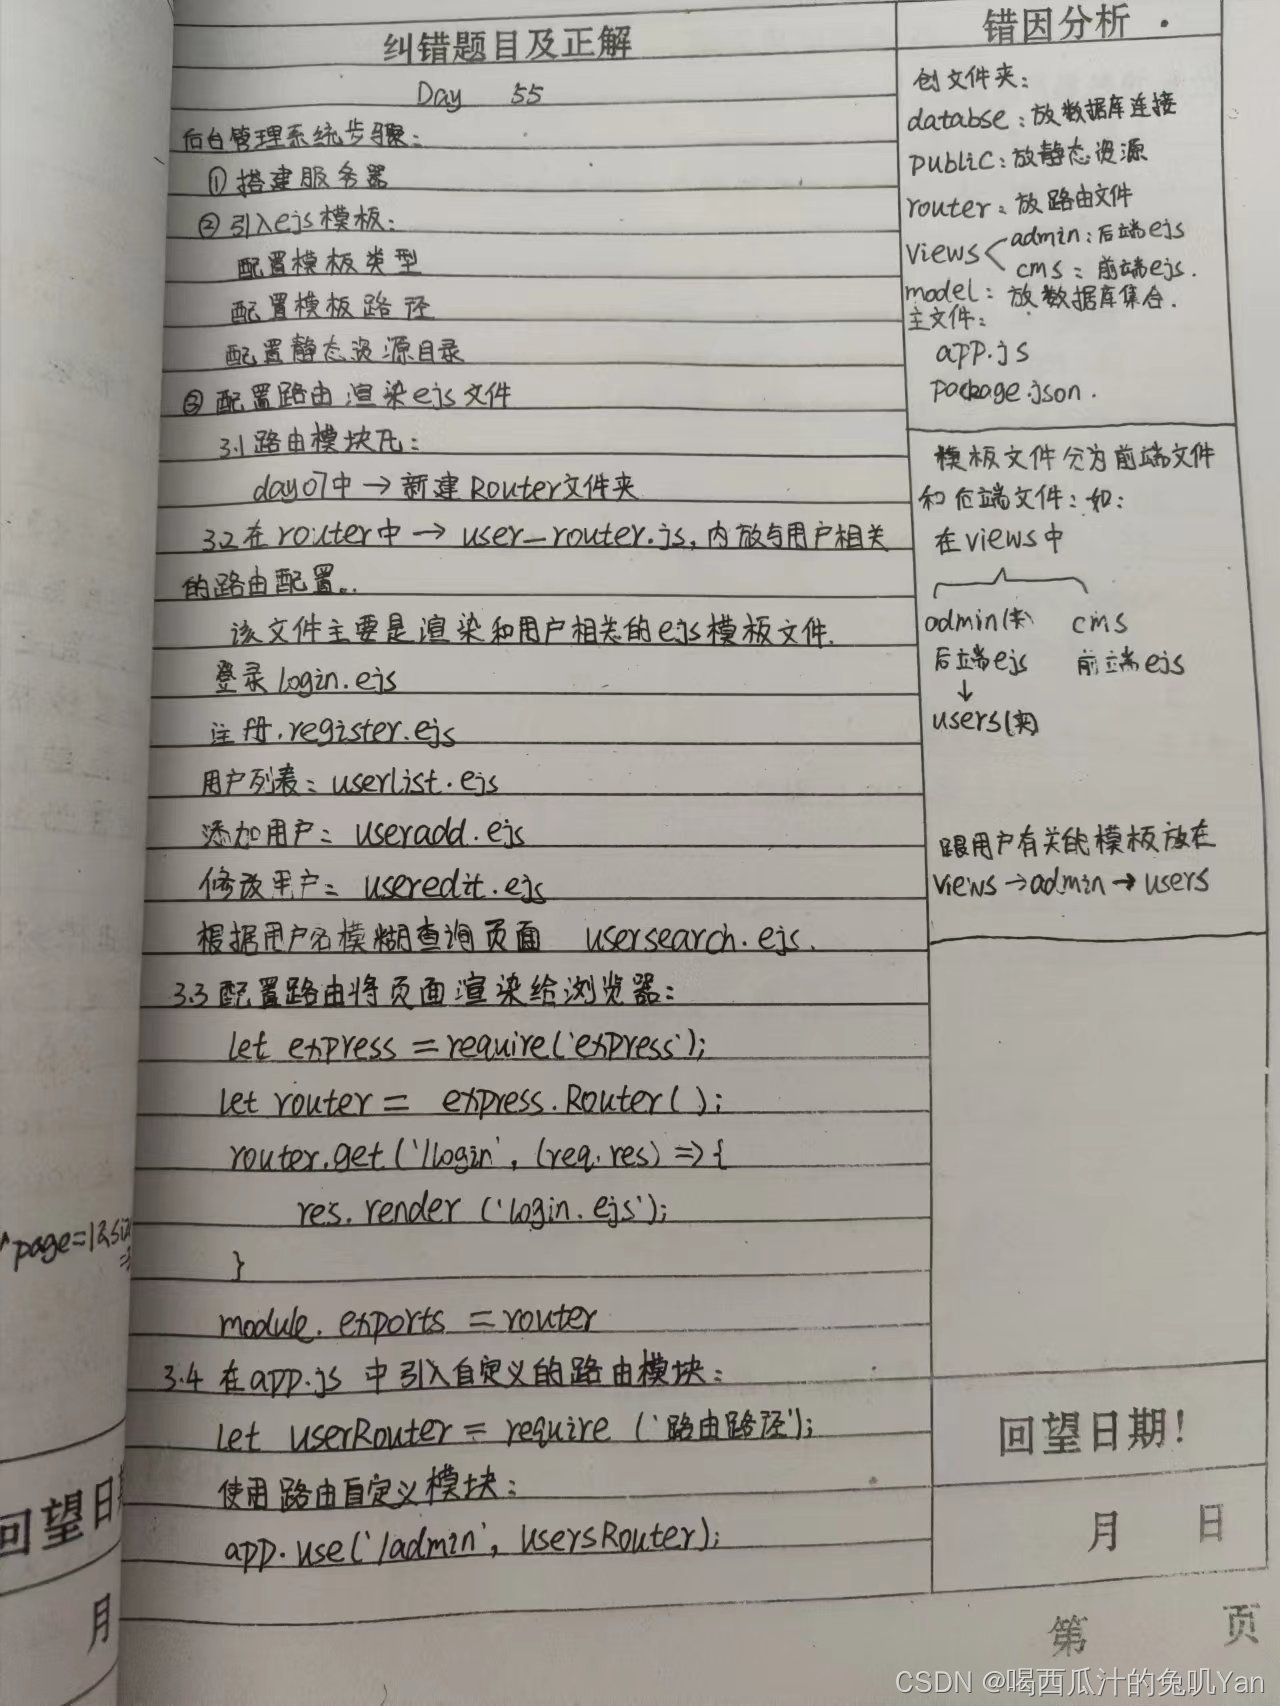 纠错题目及正解
Day 55
后台管理系统步骤:
①搭建服务器
②引入ejs模板:
配置模板类型
配置模板路径
配置静态资源目录
③配置路由渲染ejs文件
3.1路由模块化:
day07中→新建Router文件夹
3.2在router中→user_router.js,内放与用户相关
的路由配置..
该文件主要是渲染和用户相关的ejs模板文件.
登录login.ejs
注册.register.ejs
用户列表:userlist.ejs
添加用户:useradd.ejs
修改用户:useredit.ejs
根据用户名模糊查询页面 usersearch.ejs.
3.3配置路由将页面渲染给浏览器:
let express = require('express');
let router = express.Router( );
router.get('/login', (req.res) => {
res.render ('login.ejs');
}
module.exports = router
3.4 在app.js 中引入自定义的路由模块:
let userRouter = require ('路由路径');
使用路由自定义模块:
app.use('/admin', usersRouter);
错因分析.
创文件夹:
databse:放数据库连接
public:放静态资源
router:放路由文件
views admin:后端ejs
cms:前端ejs.
model:放数据库集合.
主文件:
app.js
package.json.
模板文件分为前端文件
和后端文件:如:
在views中
admin(夹) cms
后端ejs 前端ejs
↓
users(夹)
跟用户有关的模板放在
views→admin→users
回望日期!
月 日
第 页
page=1&si
回望日期
月
CSDN @喝西瓜汁的兔叽Yan